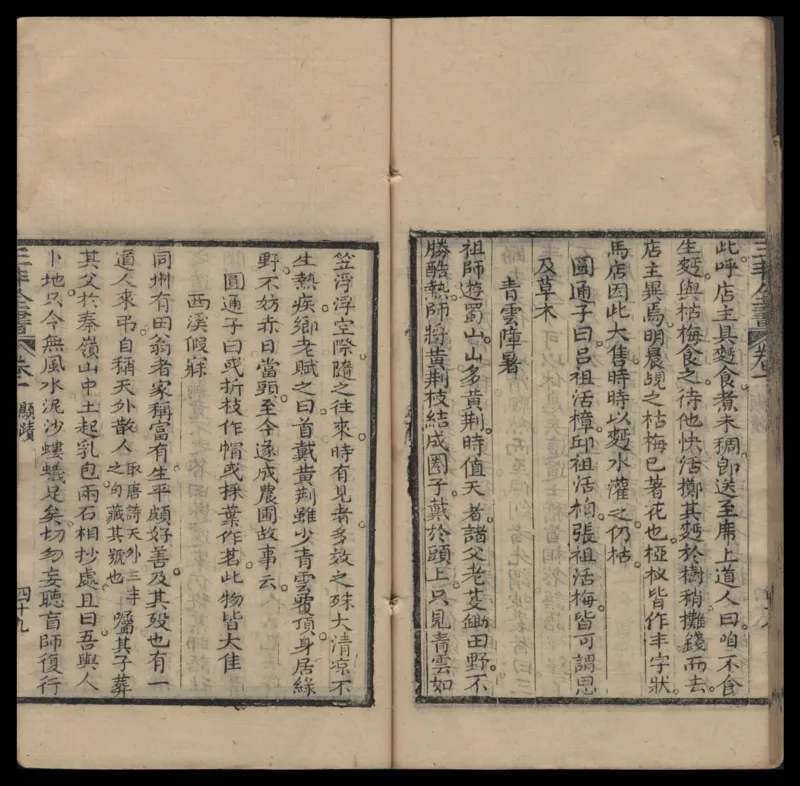 三丰全書 卷一
此呼店主具麪食煮未稠卽送至席上道人曰咱不食
生麪與枯梅食之待他快活擲其麪於樹稍攤錢而去
店主異焉明晨覘之枯梅已著花也椏杈皆作丰字狀
馬店因此大售時時以麪水灌之仍枯
圓通子曰呂祖活樟邱祖活柏張祖活梅皆可謂恩
及草木
青雲障暑
祖師遊蜀山山多黃荆時值天者諸父老芟鋤田野不
勝酷熱師將黃荆枝結成圈子戴於頭上只見青雲如
笠浮浮空際隨之往來時有見者多效之殊大清凉不
生熱疾鄉老賦之曰首戴黃荆雖少青雲覆頂身居綠
野不妨赤日當頭至今遂成農圃故事云
圓通子曰或折枝作帽或採葉作茗此物皆大佳
西溪假寐
同州有田翁者家稱富有生平頗好善及其歿也有一
道人來弔自稱天外散人取唐詩天外三丰之句藏其號也囑其子葬
其父於秦嶺山中土起乳包兩石相抄處且曰吾與人
卜地只令無風水泥沙螻蟻足矣切勿妄聽盲師復行
三丰全書 卷一 顯蹟 四十九